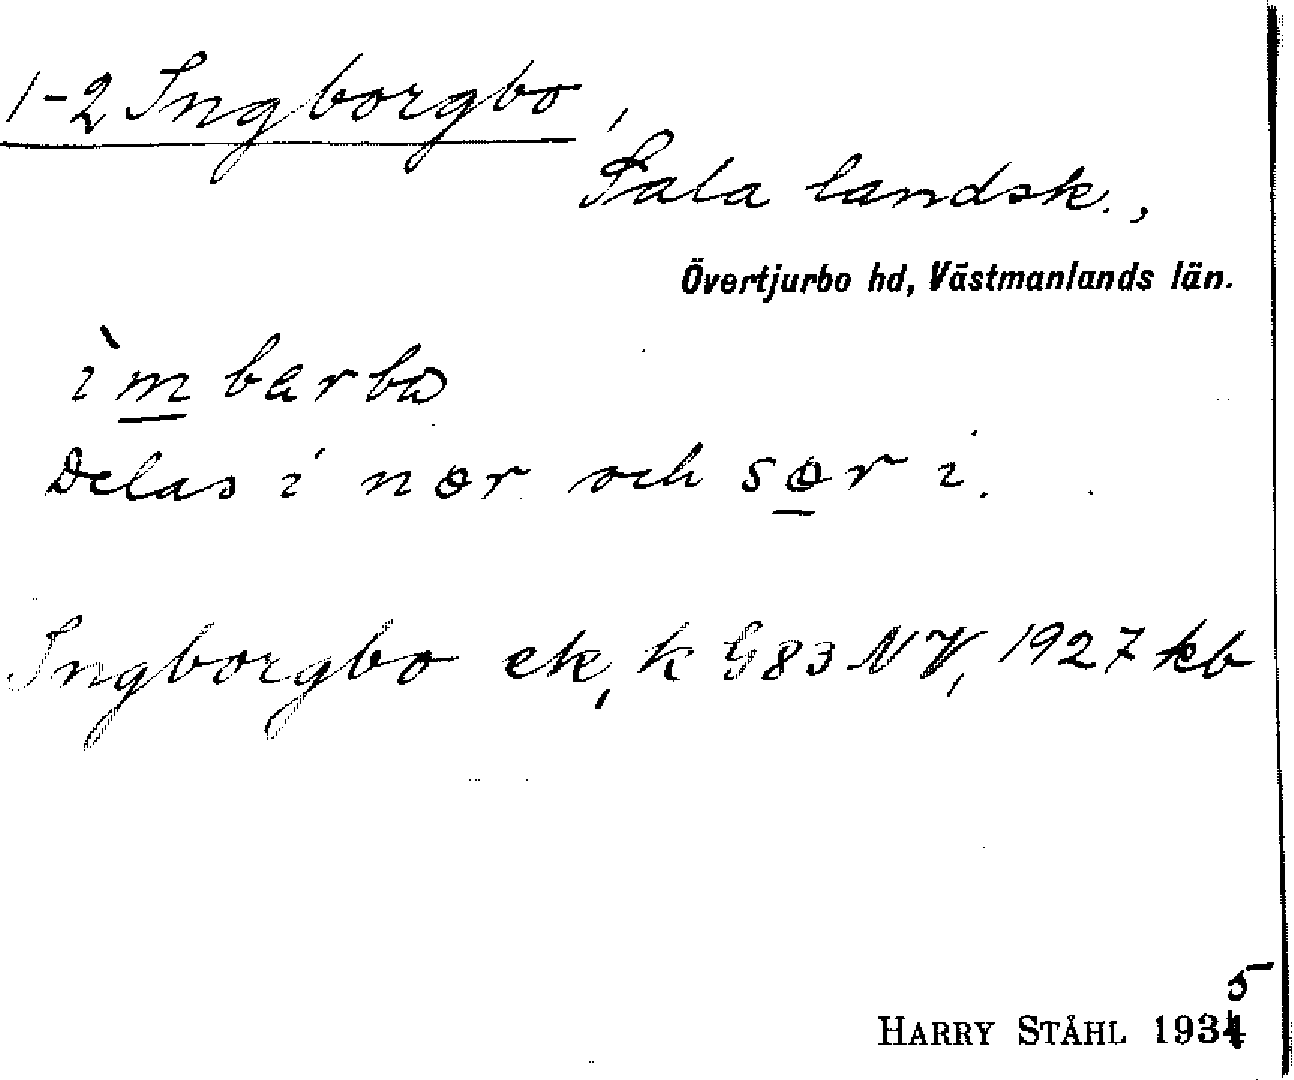 1-2 Ingborgbo,
Sala landsk.,
Övertjurbo hd, Västmanlands län.
ìmbarbo
Delas i nor och sør i.
Ingborgbo ek, k G83 NV, 1927 kb
5
HARRY STÅHL 1934